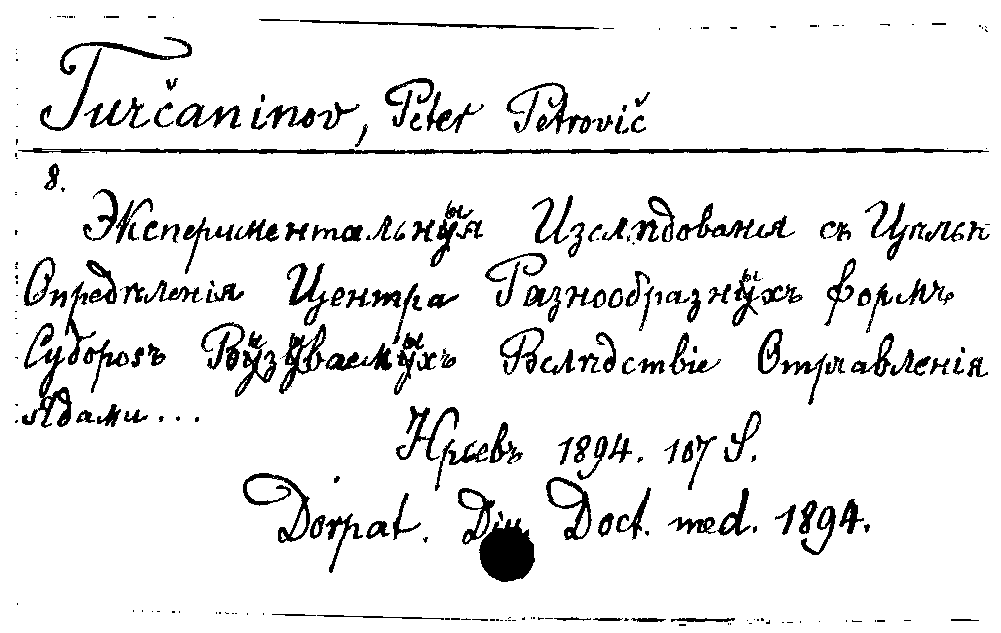 Turčaninov, Peter Petrovič
8.
Экспериментальныя Изслѣдованія съ Цѣлью
Опредѣленія Центра Разнообразныхъ формъ
Судорогъ Вызываемыхъ Вслѣдствіе Отравленія
Ядами...
Юрьевъ 1894. 107 S.
Dorpat. Diss. Doct. med. 1894.